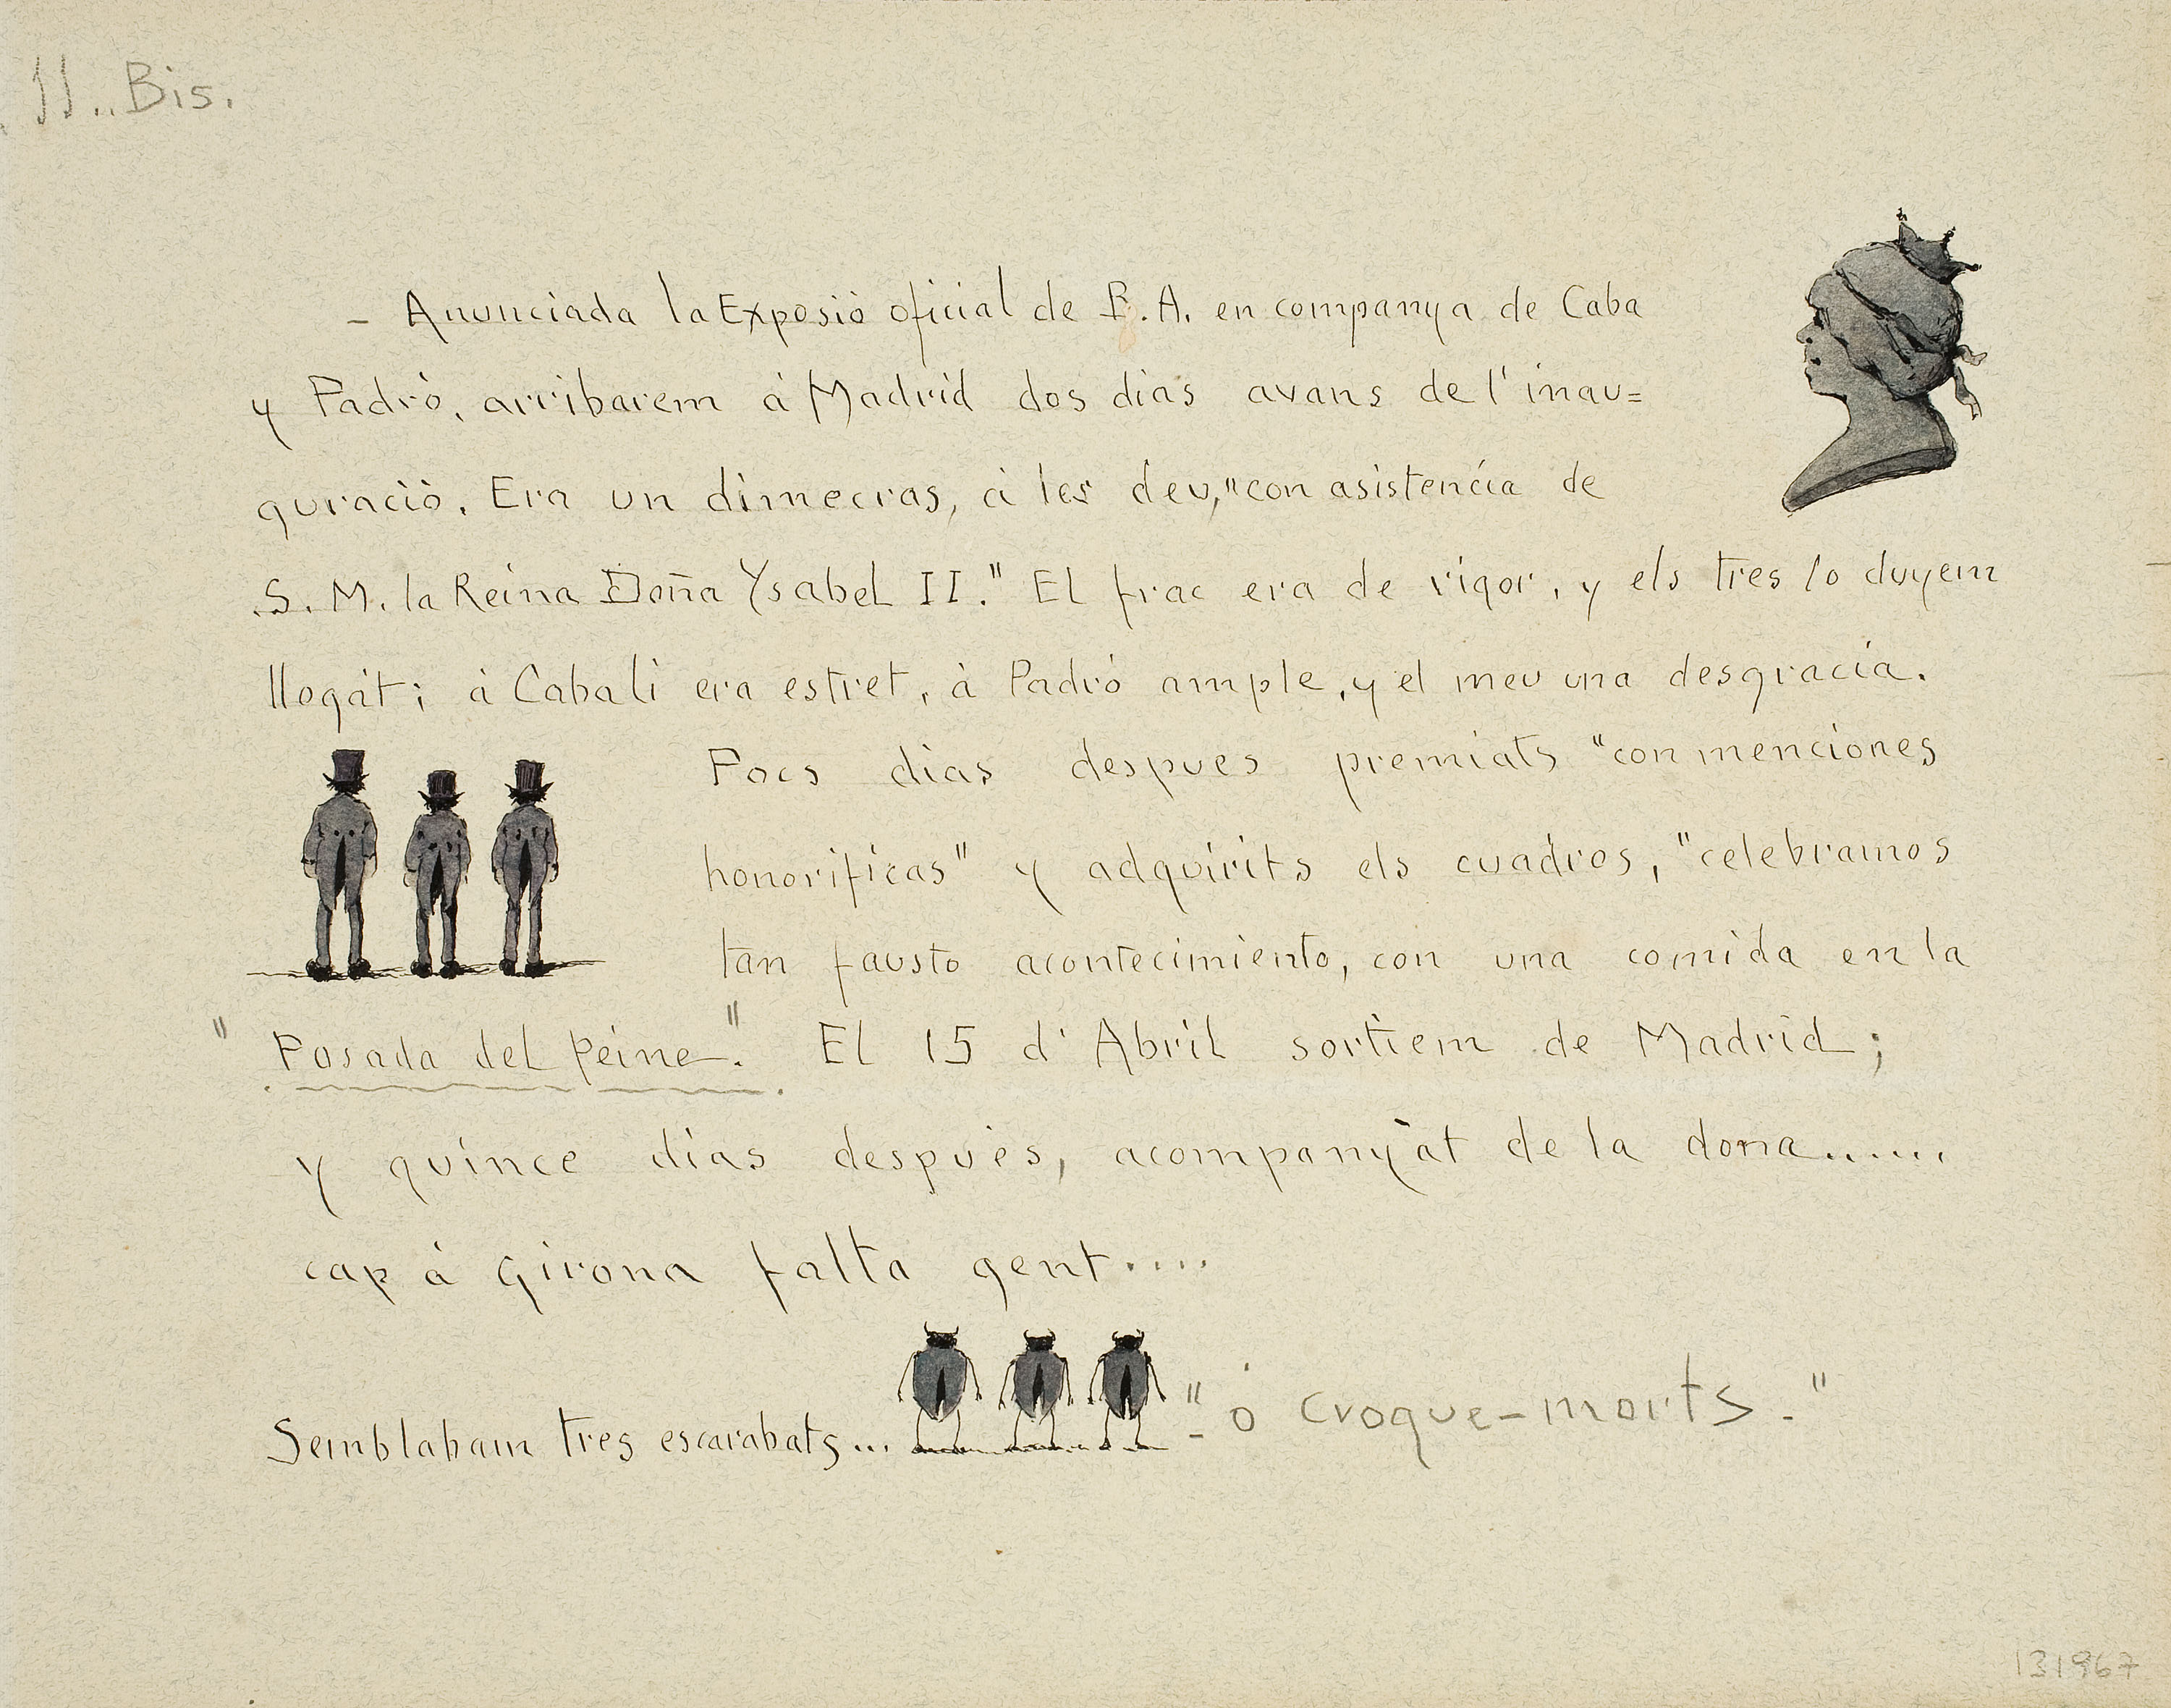 11.. Bis.
- Anunciada la Exposió oficial de B.A. en companya de Caba
y Padró, arribarem á Madrid dos dias avans de l'inau=
guració. Era un dimecras, á les deu, "con asistencia de
S. M. la Reina Doña Ysabel II." El frac era de rigor, y els tres lo duyem
llogát; á Cabali era estret, à Padró ample, y el meu una desgracia.
Pocs dias despues premiats "con menciones
honorificas" y adquirits els cuadros, "celebramos
tan fausto acontecimiento, con una comida en la
"Posada del Peine." El 15 d'Abril sortiem de Madrid;
y quince dias después, acompanyat de la dona......
cap á Girona falta gent....
Semblabam tres escarabats... "- ó croque-morts."
131967